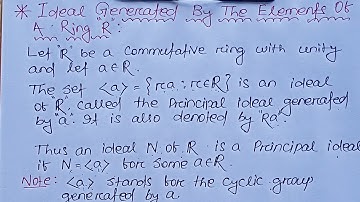 * Ideal Generated By The Elements Of
A Ring "R":
Let "R" be a commutative ring with unity
and let a∈R.
The set <a> = {ra : r∈R} is an ideal
of "R" called the Principal ideal generated
by "a". It is also denoted by "Ra".
Thus an ideal N of R is a Principal ideal
if N = <a> for some a∈R.
Note: <a> stands for the cyclic group
generated by a.